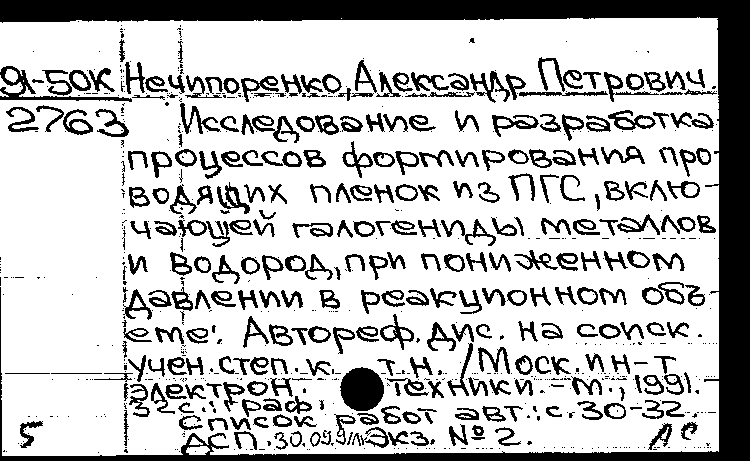 91-50К Нечипоренко, Александр Петрович.
2763 Исследование и разработка
процессов формирования про-
водящих пленок из ПГС, вклю-
чающей галогениды металлов
и водород, при пониженном
давлении в реакционном объ-
еме: Автореф. дис. на соиск.
учен. степ. к. т.н. /Моск. ин-т
электрон. техники. - М., 1991. -
32с.: граф;
Список работ авт.: с. 30-32.
5 ДСП. 30.09.91 Экз. № 2. АС.